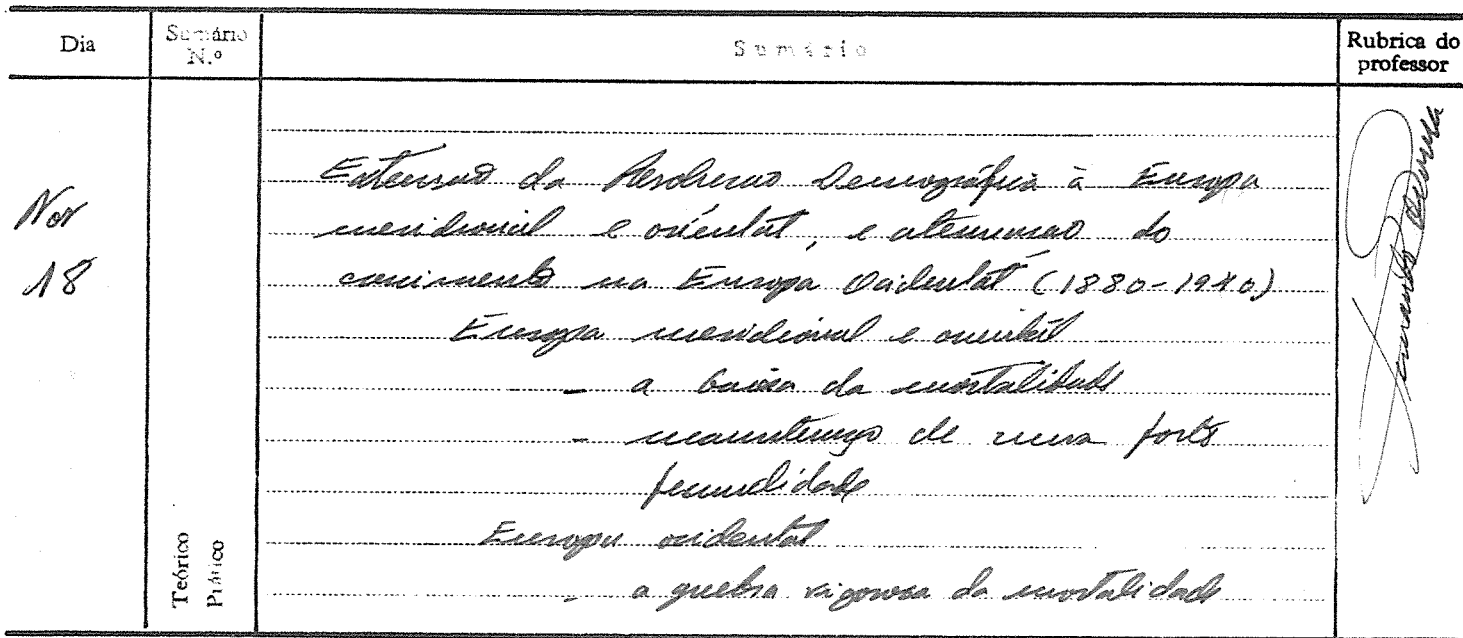 Dia
Sumário N.º
Sumário
Rubrica do professor
Nov
18
Extensão da Revolução Demográfica à Europa
meridional e oriental, e atenuação do
crescimento na Europa Ocidental (1880-1940)
Europa meridional e oriental
- a baixa da mortalidade
- manutenção de uma forte
fecundidade
Europa ocidental
- a quebra vigorosa da mortalidade
Teórico
Prático